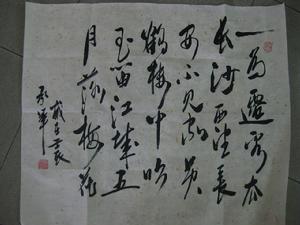 一為遷客去
長沙西望長
安不見家黃
鶴樓中吹
玉笛江城五
月落梅花